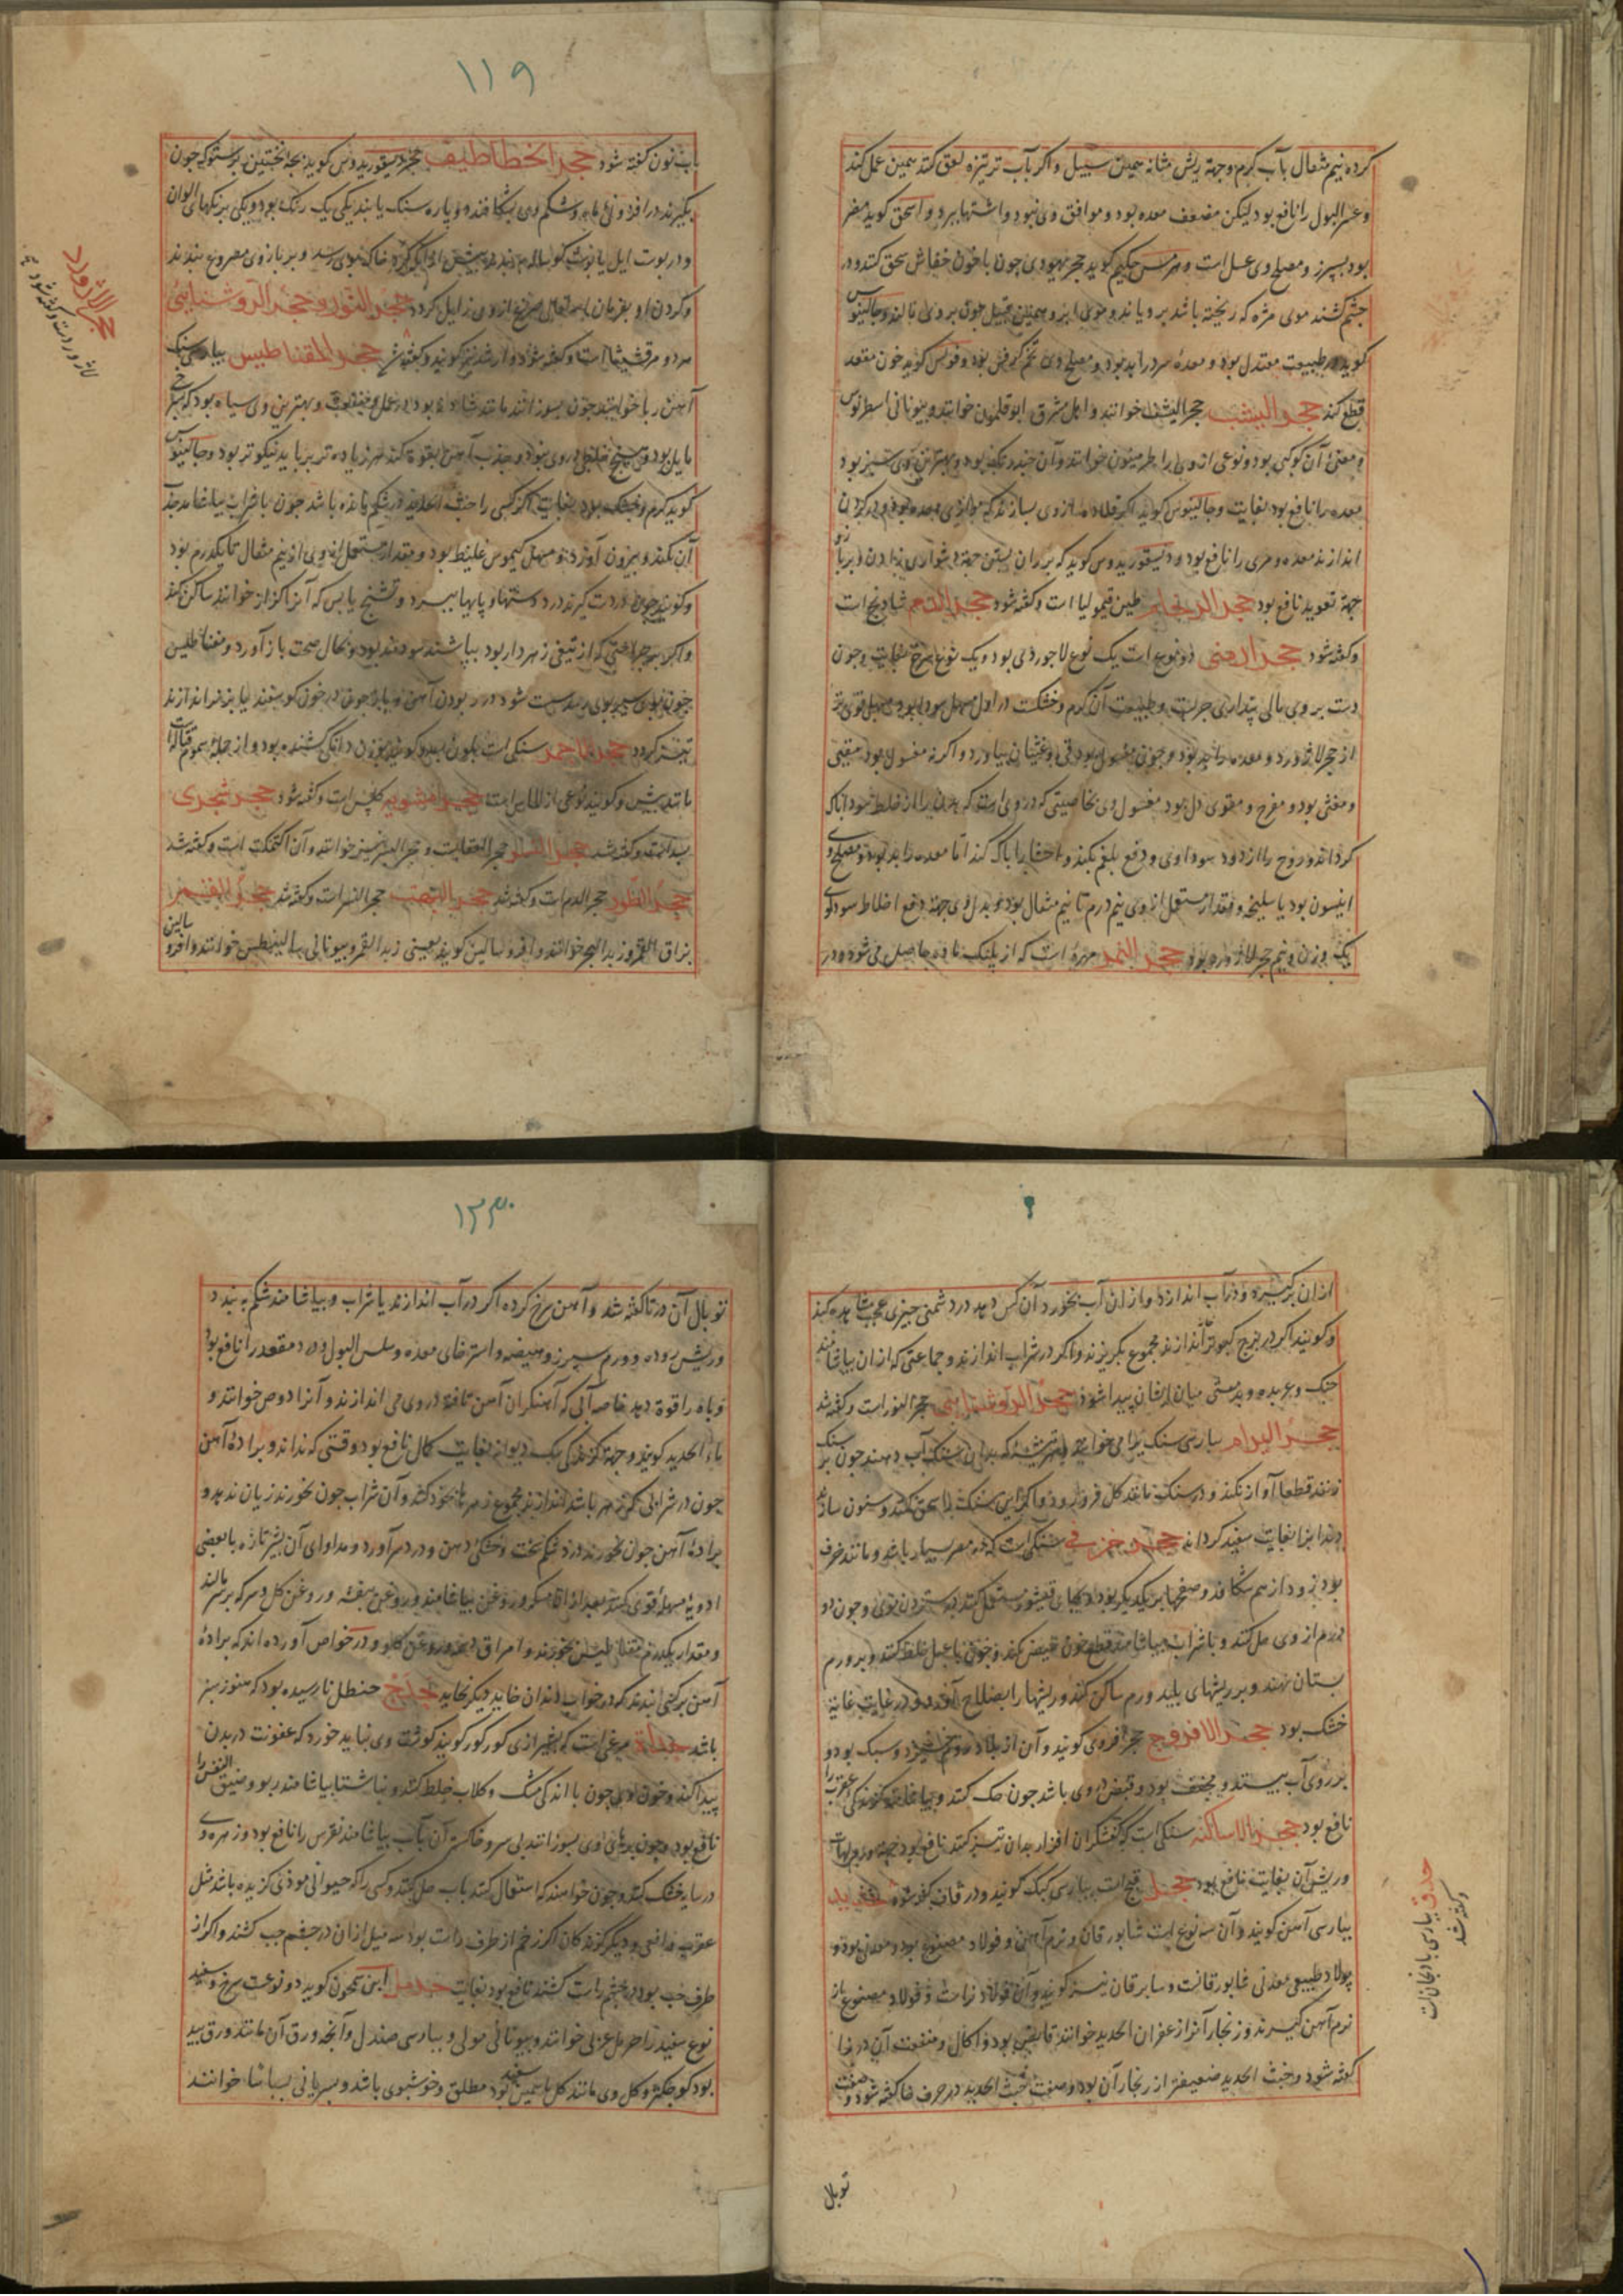 کرده نیم مثقال بآب گرم وجهة ریش مثانه همین سبیل و اگر بآب ترتیزه لعق کنند همین عمل کند
وعسر البول را نافع بود لیکن مضعف معده بود و موافق وی نبود و اشتها ببرد و اسحق گوید مضر
بود بسپرز و مصلح وی عسل است و هرمس حکیم گوید حجر یهودی چون با خون خفاش سحق کنند و در
چشم کشند موی مژه که ریخته باشد برویاند و موی ابرو همین قبیل چون بر وی مالند و جالینوس
گوید در طبیعت معتدل بود و معده سرد را بد بود و مصلح وی تخم کرفس بود و فولس گوید خون مقعد
قطع کند حجر الیشب حجر الیشف خوانند و اهل مشرق ابو قلمون خوانند و بیونانی اسطرنوس
و معنی آن کوکبی بود و نوعی از وی را طرمینون خوانند و بهترین وی سبز بود
معده را نافع بود بغایت و جالینوس گوید اگر قلاده از وی بسازند که موازی معده بود و در گردن
اندازند معده و مری را نافع بود و دیسقوریدوس گوید که بر ران بستن جهة دشواری زادن و بر بازو
جهة تعوید نافع بود حجر الرخام طین قیمولیا است و گفته شود حجر الدم شادنج است
و گفته شود حجر ارمنی دو نوع است یک نوع لاجوردی بود و یک نوع سرخ بغایت و چون
دست بر وی مالی پنداری حریر است و طبیعت آن گرم و خشکست در اول مسهل سودا بود و مسهل قوی تر
از حجر لاژورد و معده را بد بود و چون مغسول بود قی و غثیان نیاورد و اگر نه مغسول بود مقیی
و مغثی بود و مفرح و مقوی دل بود مغسول وی بخاصیتی که در وی است که بدن را از خلط سودا پاک
گرداند و روح را از دود سوداوی و دفع بلغم بکند و احشا را پاک کند اما معده را بد بود و مصلح وی
انیسون بود یا سلیخه و مقدار مستعمل از وی نیم درم تا نیم مثقال بود و بدل وی جهة دفع اخلاط سودایی
یک وزن و نیم حجر لاژورد بود حجر النمر مهره است که از پلنک ماده حاصل می شود و در
۱۱۹
باب نون گفته شود حجر الخطاطیف دیسقوریدوس گوید بچه نخستین پرستوک چون
بگیرند در افزونی ماه و شکم وی بشکافند دو پاره سنک یابند یکی یک رنک بود و یکی برنکهای الوان
و در پوست ایل یا پوست گوساله بندند پیش از آنکه خاک بدو رسد و بر بازوی مصروع بندند
و گردن او بفرمان صرع ازو زایل گردد حجر النور و حجر الروشنایی
هر دو مرقشیشا است و گفته شود حجر المقناطیس بپارسی سنک
آهن ربا خوانند چون بسوزانند مانند شادنه بود در عمل و منفعت و بهترین وی سیاه بود که بسرخی
مایل بود و هیچ خلطی در وی نبود و جذب آهن بقوة کند هر زیاده تر رباید نیکوتر بود و جالینوس
گوید گرم و خشک بود بغایت اگر کسی را خبث الحدید در شکم مانده باشد چون با شراب بیاشامد جذب
آن بکند و بیرون آورد و مسهل کیموس غلیظ بود و مقدار مستعمل از وی از نیم مثقال تا یکدرم بود
و گویند چون در دست گیرند درد دستها و پایها ببرد و تشنج یابس که آنرا کزاز خوانند ساکن کند
و اگر بر جراحتی که از تیغی زهردار بود بپاشند سودمند بود و بحال صحت باز آورد و مغناطیس
چون بوی سیر بوی رسد سست شود در ربودن آهن و باید چون در خون گوسفند یا بز نر اندازند
تیزتر گردد حجر الاحمر سنکی است بلون بسد و گویند بوزن دانگی کشنده بود و از جمله سموم قتاله است
مانند بیش و گویند نوعی از الماس است حجر مشویه کلس است و گفته شود حجر شجری
بسد است و گفته شد حجر النسر حجر العقابست و حجر الیسر نیز خوانند و آن اکتمکت است و گفته شد
حجر الطور حجر الدم است و گفته شد حجر البهت حجر النسر است و گفته شد حجر القمر
بزاق القمر و زبد البحر خوانند و افروسالین گویند یعنی زبد القمر و بیونانی سالینیطس خوانند و افروسالین
حجر لاژورد
لاژورد است و گفته شود
از آن برگیرند و در آب اندازد و از آن آب بخورد آن کس دهد در دشمنی چیزی عجب مشاهده کند
و گویند اگر در برج کبوتر اندازند مجموع بگریزند و اگر در شراب اندازند و جماعتی که از آن بیاشامند
جنک و عربده و بد مستی میان ایشان پیدا شود حجر الروشنایی حجر النور است و گفته شد
حجر البرام بپارسی سنک دهند چون بر سنک
زنند قطعا آواز نکند و در سنک مانند کل فرو رود و اگر این سنک را سحق کنند و سنون سازند
دندانرا بغایت سفید گرداند حجر خزفی سنکی است که در مصر بسیار باشد و مانند خزف
بود زود از هم شکافد و صفحها بر یکدیگر بود و بجای قیشور مستعمل کنند در ستردن موی و چون دو
درم از وی حل کنند و با شراب بیاشامند قطع خون حیض بکند و چون با عسل خلط کنند و بر ورم
پستان نهند و بر ریشهای پلید ورم ساکن کند و ریشها را بصلاح آورد و در غایت
خشک بود حجر الافروج حجر افروی گویند و آن از بلاد روم خیزد و سبک بود و
بر روی آب بیستد و مجفف بود و قبض در وی باشد چون حک کنند و بیاشامند گزندگی عقرب را
نافع بود حجر الاساکفه سنکی است که کفشگران افزار بدان تیز کنند نافع بود جهة ورم لهات
و ریش آن بغایت نافع بود حجل قبج است بپارسی کبک گویند و در قاف گفته شود حدید
بپارسی آهن گویند و آن سه نوع است شابورقان و نرم آهن و فولاد مصنوع بود و معدنی بود و
پولاد طبیعی معدنی شابورقانست و سابرقان نیز گویند و آن فولاد نر است و فولاد مصنوع از
نرم آهن گیرند و زنجار آنرا زعفران الحدید خوانند قابض بود و اکال و منفعت آن در زا
گفته شود و خبث الحدید ضعیفتر از زنجار آن بود و صفت خبث الحدید در حرف خا گفته شود و صفت
توبال
حدق بپارسی بادنجانست
و گفته شد
۱۳۳۰
توبال آن در تا گفته شد و آهن سرخ کرده اگر در آب اندازند یا شراب و بیاشامند شکم ببندد
و ریش روده و ورم سپرز و هیضه و استرخای معده و سلس البول و درد مقعد را نافع بود
و باه را قوة دهد خاصه آبی که آهنگران آهن تافته در وی می اندازند و آنرا دوص خوانند و
ماء الحدید گویند و جهة گزندگی سک دیوانه بغایت کمال نافع بود وقتی که نداند و براده آهن
چون در شرابی که زهر باشد اندازند مجموع زهرها بخود کشد و آن شراب چون بخورند زیان ندهد و
براده آهن چون بخورند درد شکم سخت و خشکی دهن و درد سر آورد و مداوای آن بشیر تازه با بعضی
ادویه مسهله قوی کنند بعد از آن مسکه و روغن بیاشامند و روغن بنفشه و روغن کل و سرکه بر سر مالند
و مقدار یکدرم مغناطیس بخورند و امراق دهند و روغن کاو و در خواص آورده اند که براده
آهن بر کسی بندند که در خواب دندان خاید دیگر نخاید حدج حنظل نارسیده بود که هنوز سبز
باشد حدأة مرغی است که بشیرازی کورکور گویند گوشت وی نباید خورد که عفونت در بدن
پیدا کند و خون وی چون با اندکی مشک و گلاب خلط کنند و بناشتا بیاشامند ربو و ضیق النفس را
نافع بود و چون پرهای وی بسوزانند بی سر و خاکستر آن بآب بیاشامند نقرس را نافع بود و زهره وی
در سایه خشک کنند و چون خواهند که استعمال کنند بآب حل کنند و کسی را که حیوانی موذی گزیده باشد مثل
عقرب و افعی و دیگر گزندگان اگر زخم از طرف راست بود سه میل از آن در چشم چپ کشند و اگر از
طرف چپ بود در چشم راست کشند نافع بود بغایت حرمل ابن سمجون گوید دو نوعست سرخ و سفید
نوع سفید را حرمل عربی خوانند و بیونانی مولی و بپارسی صندل و آنچه ورق آن مانند ورق بید
بود کوچکتر و کل وی مانند کل یاسمین سفید بود مطلق و خوشبوی باشد و بسریانی بساسا خوانند